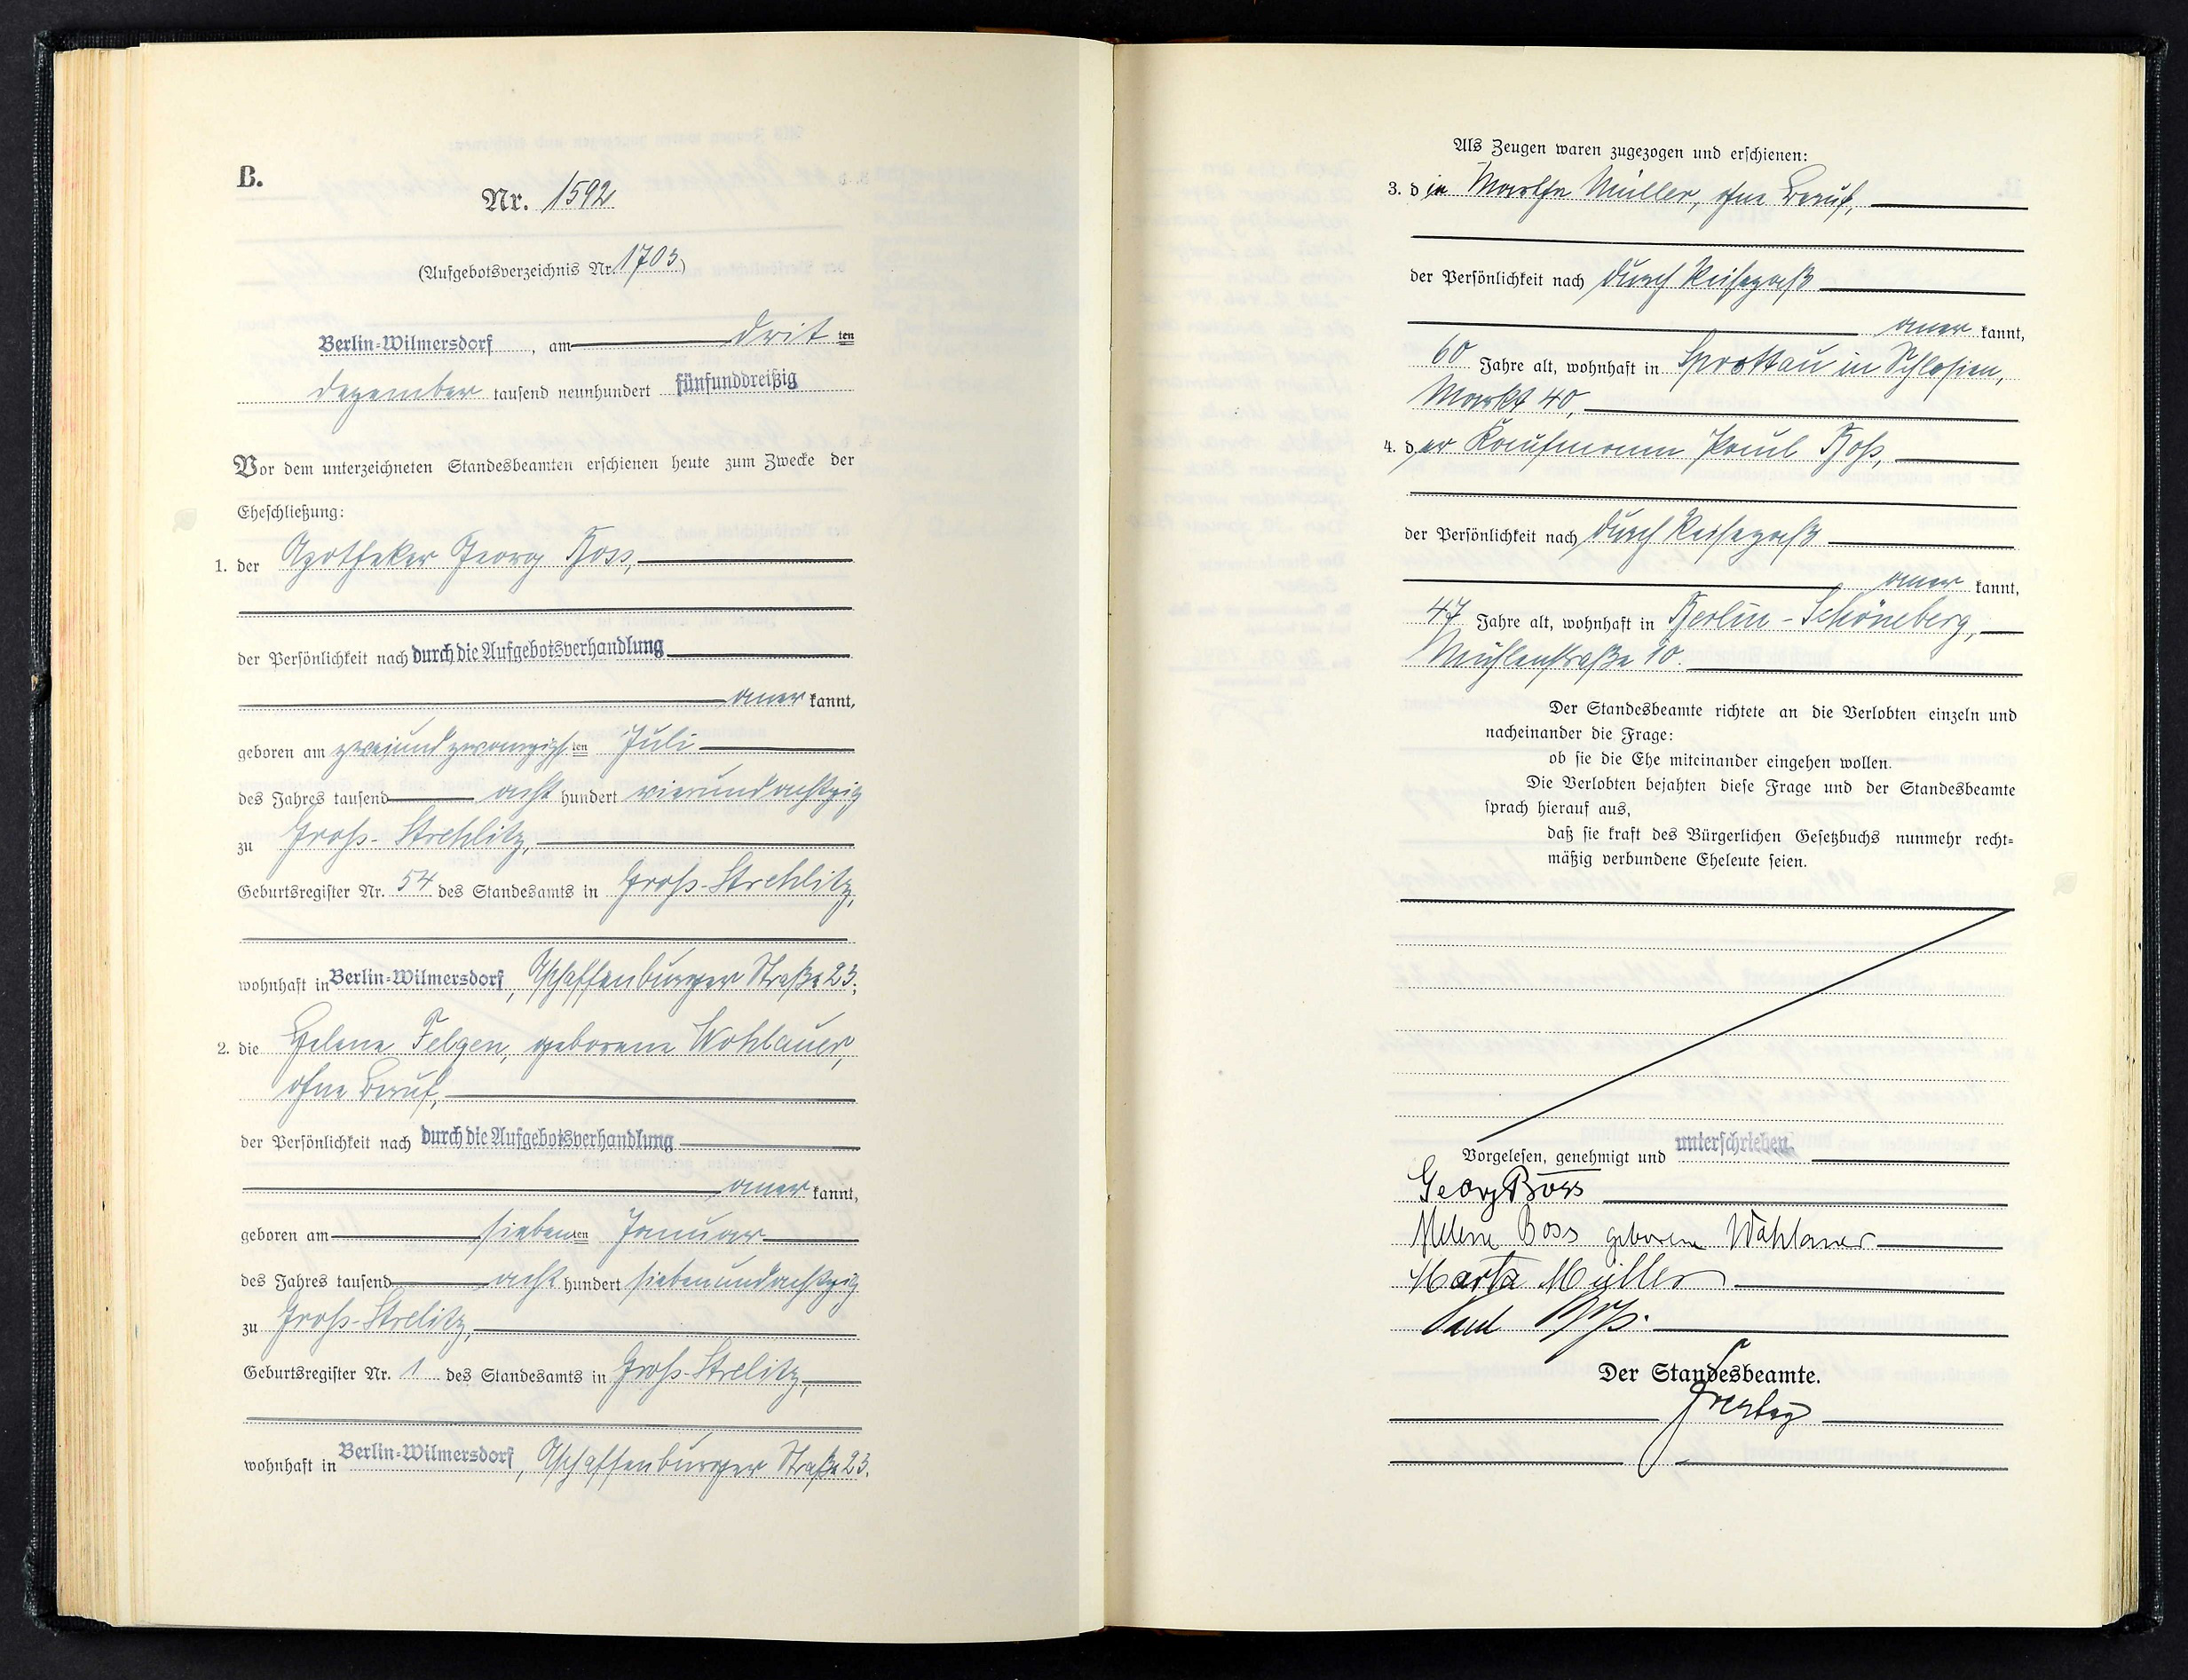 B.
Nr. 1592
(Aufgebotsverzeichnis Nr. 1703)
Berlin-Wilmersdorf, am dritten
Dezember tausend neunhundert fünfunddreißig
Vor dem unterzeichneten Standesbeamten erschienen heute zum Zwecke der
Eheschließung:
1. der Apotheker Georg Boss,
der Persönlichkeit nach durch die Aufgebotsverhandlung
anerkannt,
geboren am zweiundzwanzigsten Juli
des Jahres tausend acht hundert vierundachtzig
zu Groß-Strehlitz,
Geburtsregister Nr. 54 des Standesamts in Groß-Strehlitz,
wohnhaft in Berlin-Wilmersdorf, Aschaffenburger Straße 23;
2. die Helene Felgen, geborene Wohlauer,
ohne Beruf,
der Persönlichkeit nach durch die Aufgebotsverhandlung
anerkannt,
geboren am siebenten Januar
des Jahres tausend acht hundert siebenundachtzig
zu Groß-Strelitz,
Geburtsregister Nr. 1 des Standesamts in Groß-Strelitz,
wohnhaft in Berlin-Wilmersdorf, Aschaffenburger Straße 23.
Als Zeugen waren zugezogen und erschienen:
3. die Martha Müller, ohne Beruf,
der Persönlichkeit nach durch Reisepaß
anerkannt,
60 Jahre alt, wohnhaft in Sprottau in Schlesien,
Markt 40,
4. der Kaufmann Paul Boß,
der Persönlichkeit nach durch Reisepaß
anerkannt,
47 Jahre alt, wohnhaft in Berlin-Schöneberg,
Mühlenstraße 10.
Der Standesbeamte richtete an die Verlobten einzeln und
nacheinander die Frage:
ob sie die Ehe miteinander eingehen wollen.
Die Verlobten bejahten diese Frage und der Standesbeamte
sprach hierauf aus,
daß sie kraft des Bürgerlichen Gesetzbuchs nunmehr recht-
mäßig verbundene Eheleute seien.
Vorgelesen, genehmigt und unterschrieben
Georg Boss
Helene Boss geborene Wohlauer
Marta Müller
Paul Boß.
Der Standesbeamte.
Freytag